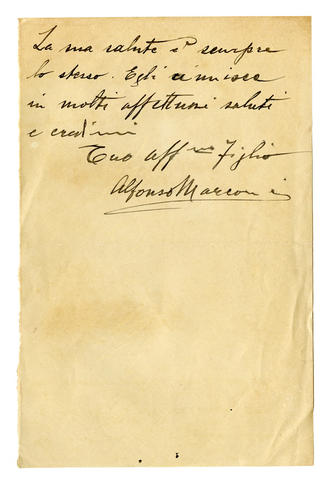 La sua salute è sempre
lo stesso. Egli ci unisce
in molti affettuosi saluti
e credimi
Tuo aff mo Figlio
Alfonso Marconi